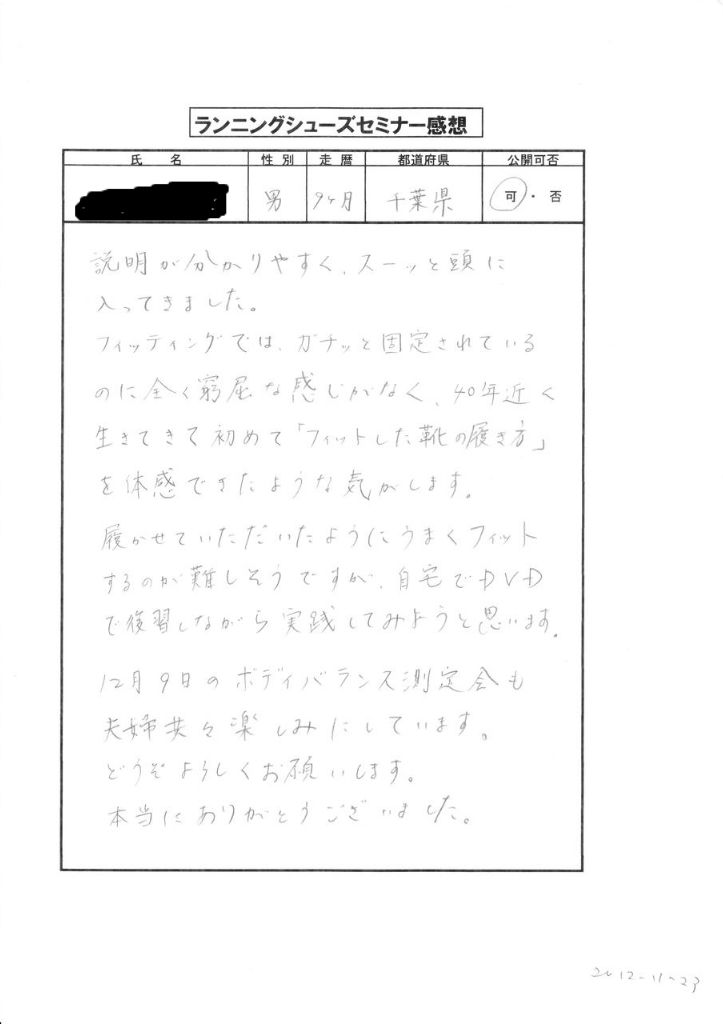 ランニングシューズセミナー感想
氏 名 性 別 走 暦 都道府県 公開可否
男 9ヶ月 千葉県 可・否
説明が分かりやすく、スーッと頭に
入ってきました。
フィッティングでは、ガチッと固定されている
のに全く窮屈な感じがなく、40年近く
生きてきて初めて「フィットした靴の履き方」
を体感できたような気がします。
履かせていただいたようにうまくフィット
するのが難しそうですが、自宅でDVD
で復習しながら実践してみようと思います。
12月9日のボディバランス測定会も
夫婦共々楽しみにしています。
どうぞよろしくお願いします。
本当にありがとうございました。
2012-11-23